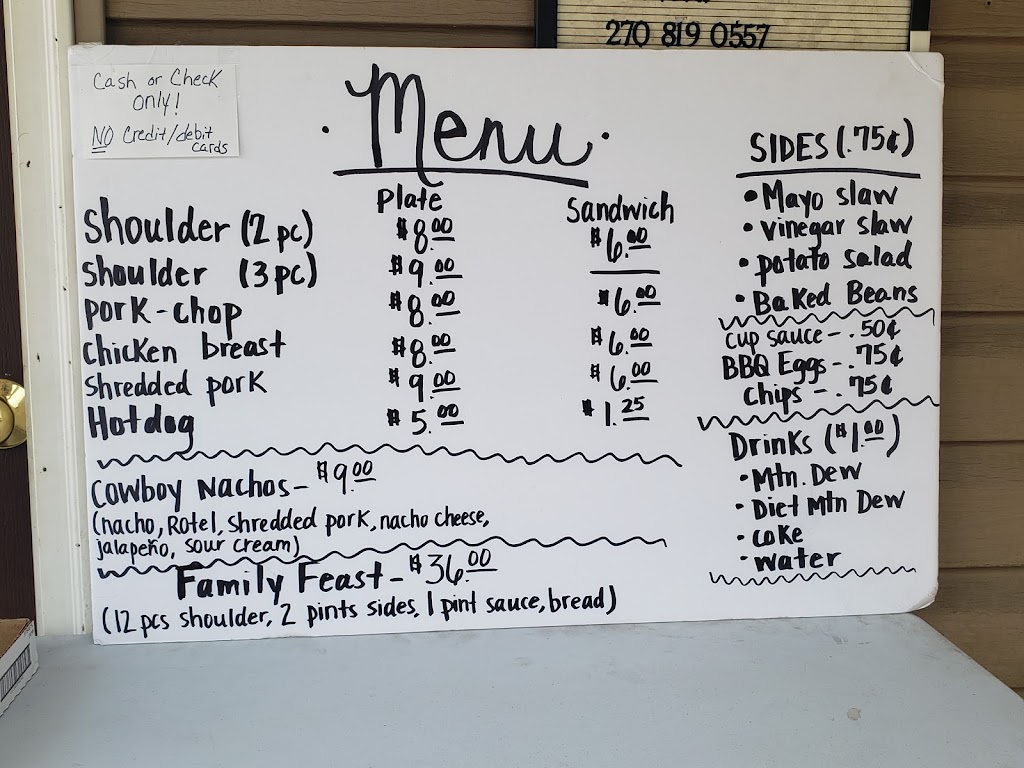 270 819 0557
Cash or Check
only!
NO Credit/debit
cards
Menu
Plate
Sandwich
Shoulder (2 pc) $8.00 $6.00
Shoulder (3 pc) $9.00
pork-chop $8.00 $6.00
chicken breast $8.00 $6.00
shredded pork $9.00 $6.00
Hotdog $5.00 $1.25
Cowboy Nachos - $9.00
(nacho, Rotel, shredded pork, nacho cheese,
jalapeño, sour cream)
Family Feast - $36.00
(12 pcs shoulder, 2 pints sides, 1 pint sauce, bread)
SIDES (.75¢)
• Mayo slaw
• vinegar slaw
• potato salad
• Baked Beans
cup sauce - .50¢
BBQ Eggs - .75¢
Chips - .75¢
Drinks ($1.00)
• Mtn. Dew
• Diet Mtn Dew
• coke
• water